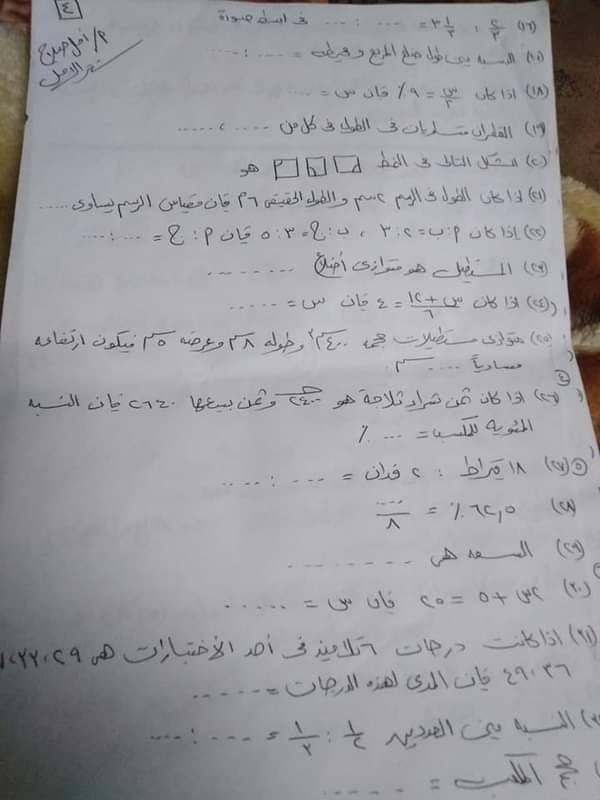 ٤
م/ أمل صلاح
سحر الأمل
(١٦) ٢/٣ : ٣ ١/٢ = ... : ... فى ابسط صورة
(١٧) النسبه بين طول ضلع المربع ومحيطه = .... : ....
(١٨) اذا كان س/٣ = ٩٪ فإن س = ...
(١٩) القطران متساويان فى الطول فى كل من .... ، ....
(٢٠) الشكل التالى فى النمط هو
(٢١) اذا كان الطول فى الرسم ٢سم والطول الحقيقى ٦م فإن مقياس الرسم يساوى .....
(٢٢) إذا كان م : ب = ٢ : ٣ ، ب : ج = ٣ : ٥ فإن م : ج = ... : ...
(٢٣) المستطيل هو متوازى أضلاع ........
(٢٤) اذا كان س + ١٢/٦ = ٤ فإن س = .....
(٢٥) متوازى مستطيلات حجمه ٤٠٠سم٣ وطوله ٨سم وعرضه ٥سم فيكون ارتفاعه
مساوياً .... سم
(٢٦) اذا كان ثمن شراء ثلاجة هو ٢٤٠٠ جـ وثمن بيعها ٢٦٤٠ فإن النسبه
المئويه للمكسب = ... ٪
(٢٧) ١٨ قيراط : ٢ فدان = ... : ...
(٢٨) ٦٢,٥٪ = .../٨
(٢٩) السعه هى ........
(٣٠) ٢س + ٥ = ٢٥ فإن س = .....
(٣١) اذا كانت درجات ٦ تلاميذ فى أحد الأختبارات هى ٢٩، ٣٢،
٣٦، ٤٩ فإن المدى لهذه الدرجات = .....
النسبه بين العددين ١/٢ : ١/٣ = ... : ...
حجم المكعب = .....